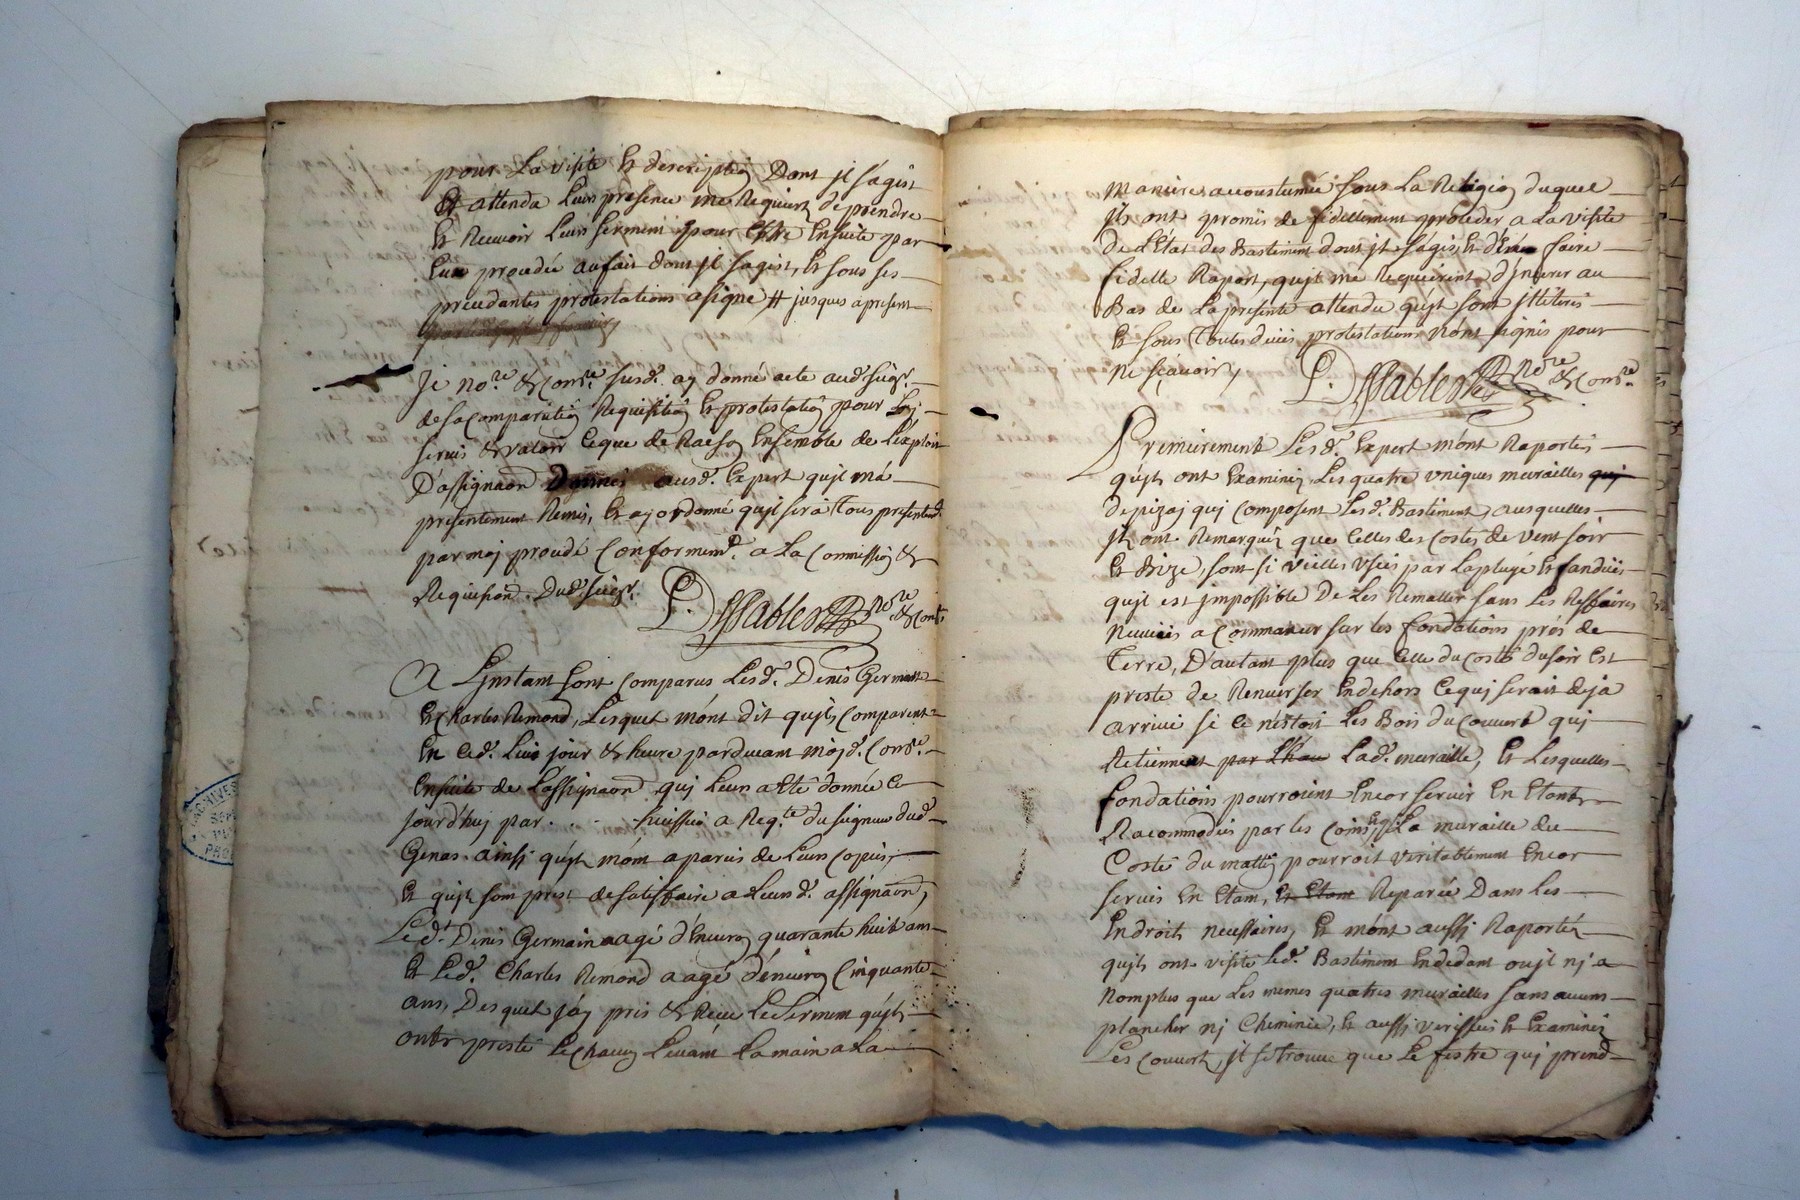 pour La visite Et description Dont jl s'agist
Et attendu Leurs presence me Requiert de prendre
Et Recevoir Leurs serment pour Estre Ensuite par
Eux procedé au fait dont jl s'agist, Et sous ses
precedantes protestations a signé # jusques a present
Je no.re & Com.re susd. ay donné acte aud. sieur
de sa comparution Requisition Et protestation pour luy
servir & valoir ceque de Raison Ensemble de L'exploit
D'assignaon Donnés ausd. Expert qujl m'a
presentement Remis, Et ay ordonné qujl sera Tous presentem.t
par moj procedé Conformem.t a La Commission &
Requision. Dud. sieur.
P. Dessables no.re & Com.re
A L'jnstant sont comparus Lesd. Denis Germain
Et Charles Remond, Lesquels m'ont dit qujls comparent
En ced. Lieu jour & heure pardevant mojd. Com.re
Ensuite de L'assignaon quj Leur a Eté donnée ce
jourd'huj par . . . huissier a Req.te du seigneur dud.
Genas ainsj qujls m'ont aparus de Leurs copies,
Et qujls sont prest de satisfaire a Leursd. assignaon,
Led. Denis Germain aagé d'Environ quarante huit ans
Et Led. Charles Remond aagé d'environ Cinquante
ans, Desquels j'ay pris & Receu Le Serment qujls
ont presté Lechacun Levant La main a La
maniere accoustumée sous La Religion duquel
jls ont promis de fidellement proceder a La visite
de L'Etat des Bastiment dont jl s'agist, Et d'En faire
fidelle Raport, qujls me Requierent d'jnserer au
Bas de La presente attendu qujls sont jlleterés
Et sous Toutes dües protestations n'ont signés pour
ne sçavoir,
P. Dessables no.re & Com.re
Premierement Lesd. Expert m'ont Raportés
qujls ont Examinés Les quatre vniques murailles quj
de pizaj quj composent Lesd. Bastiment, ausquelles
jls ont Remarqués que Celles des costés de vent soir
Et Bize, sont si vieilles vsées par La pluye Et fandües
qujl est jmpossible De Les Remetter sans Les Reffaires
neuves a Commancer sur les fondations prés de
Terre, D'autant plus que Celle du costé du soir Est
preste de Renverser En dehors ce quj serait deja
arrivé si ce n'étoit Les Bois du couvert quj
Retiennent par L'hau Lad. muraille, Et Lesquelles
fondations pourroient Encor servir En Etant
Racommodées par les coins, Et que La muraille du
Costé du mattin pourroit veritablement Encor
servir En Etant, Et Etant Reparée Dans Les
Endroits necessaires, Et m'ont aussj Raportés
qujls ont visité Led. Bastiment En dedans ou jl nj a
Nomplus que Les mêmes quatres murailles sans aucuns
plancher nj Cheminée, Et aussj verisfiés Et Examinés
Les couvert, jl se trouve que Le festre quj prend